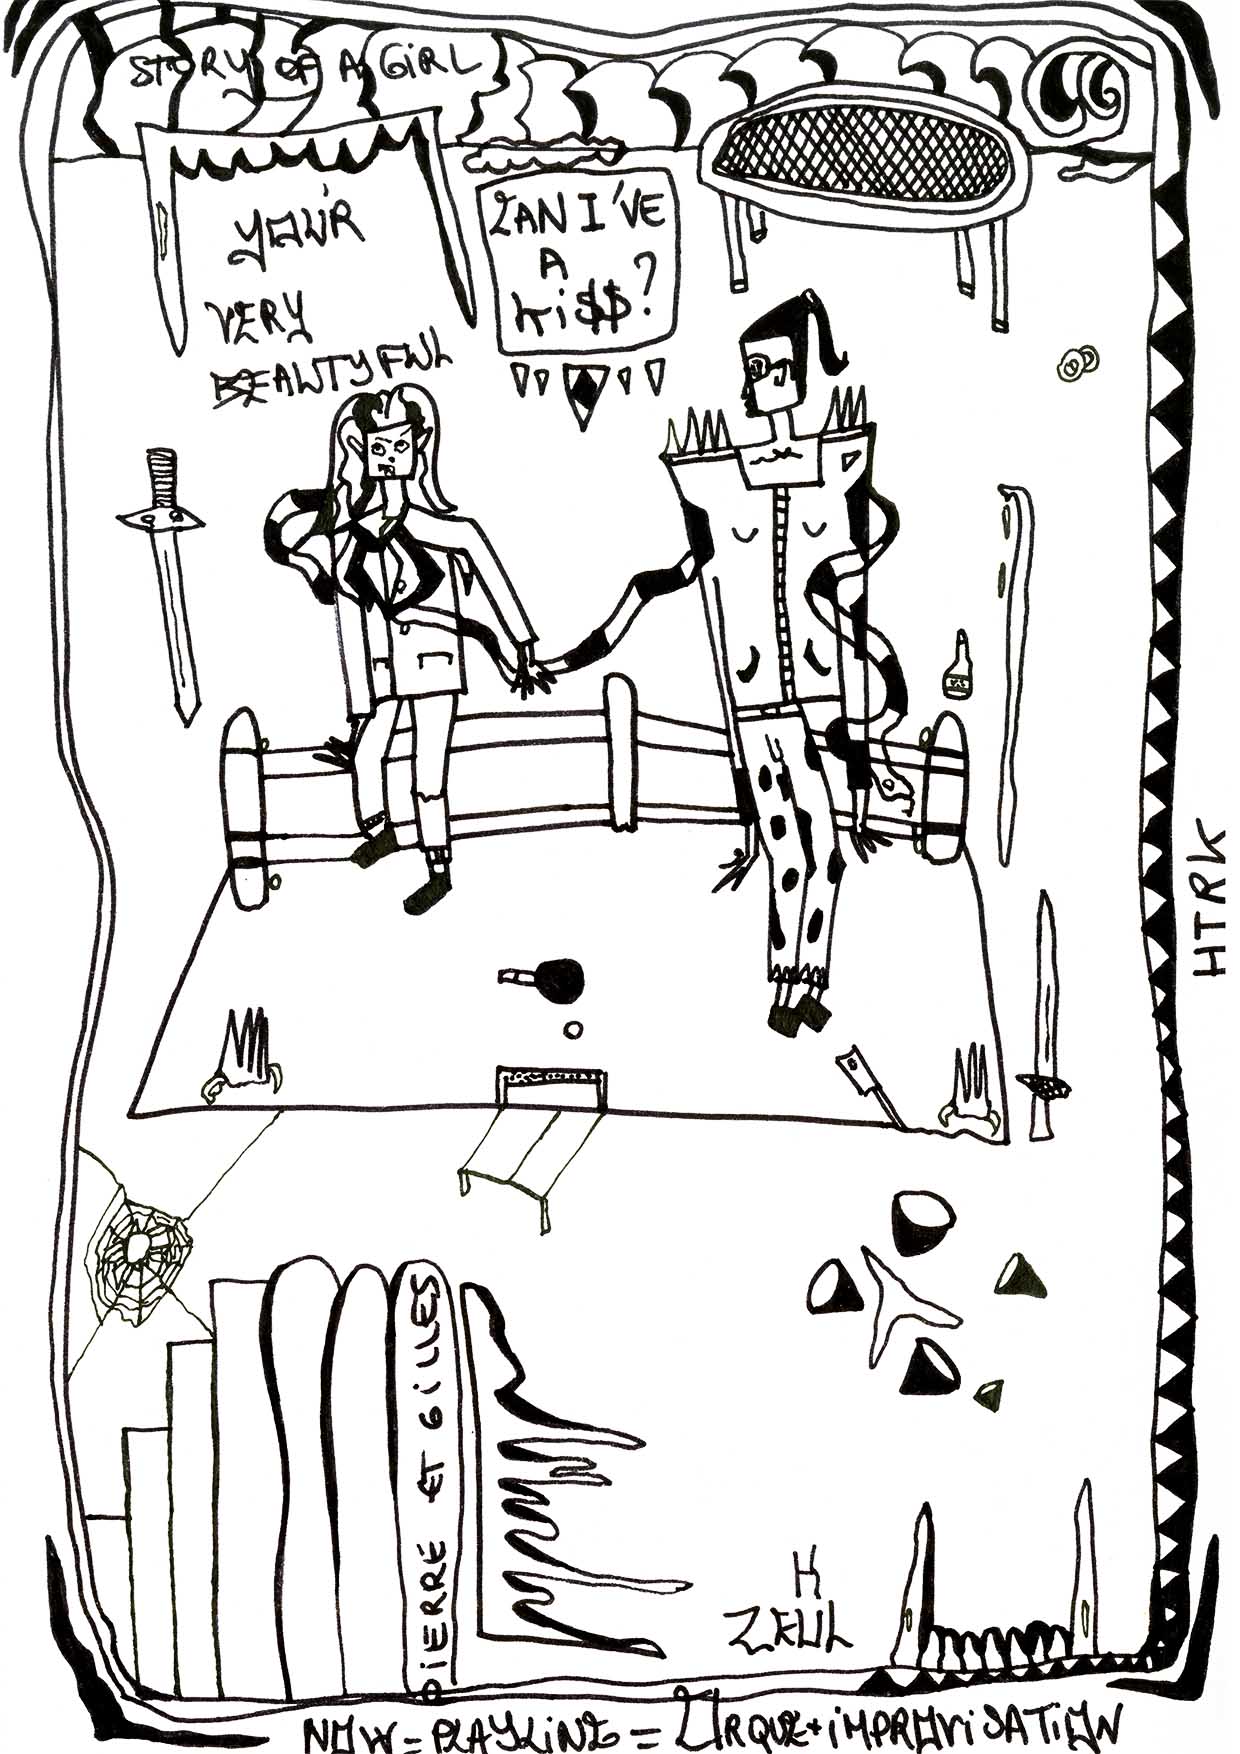 STORY OF A GIRL
YOU'R
VERY
BEAUTYFUL
CAN I'VE
A
Ki$$?
HTRK
PIERRE ET GILLES
H
ZEUL
NOW = PLAYLING = URQUE + iMPROViSATiON